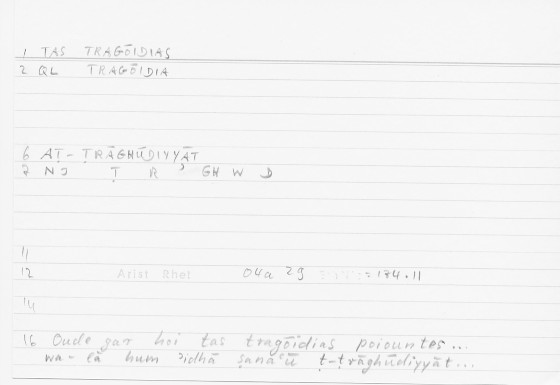 1 TAS TRAGŌIDIAS
2 QL TRAGŌIDIA
6 AṬ-ṬRĀGHŪDIYYĀT
7 NJ Ṭ R ʾ GH W D
11
12 Arist Rhet 04a 29 = 184.11
14
16 Oude gar hoi tas tragōidias poiountes...
wa-lā hum ʾidhā ṣanaʿū ṭ-ṭrāghūdiyyāt...